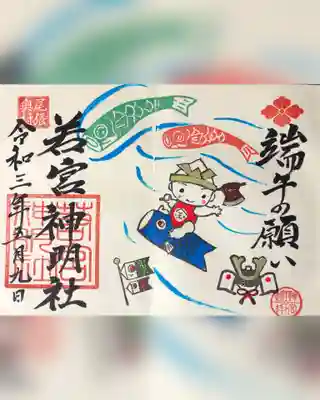 端午の願い
尾張
奥町
若宮神明社
令和三年五月九日